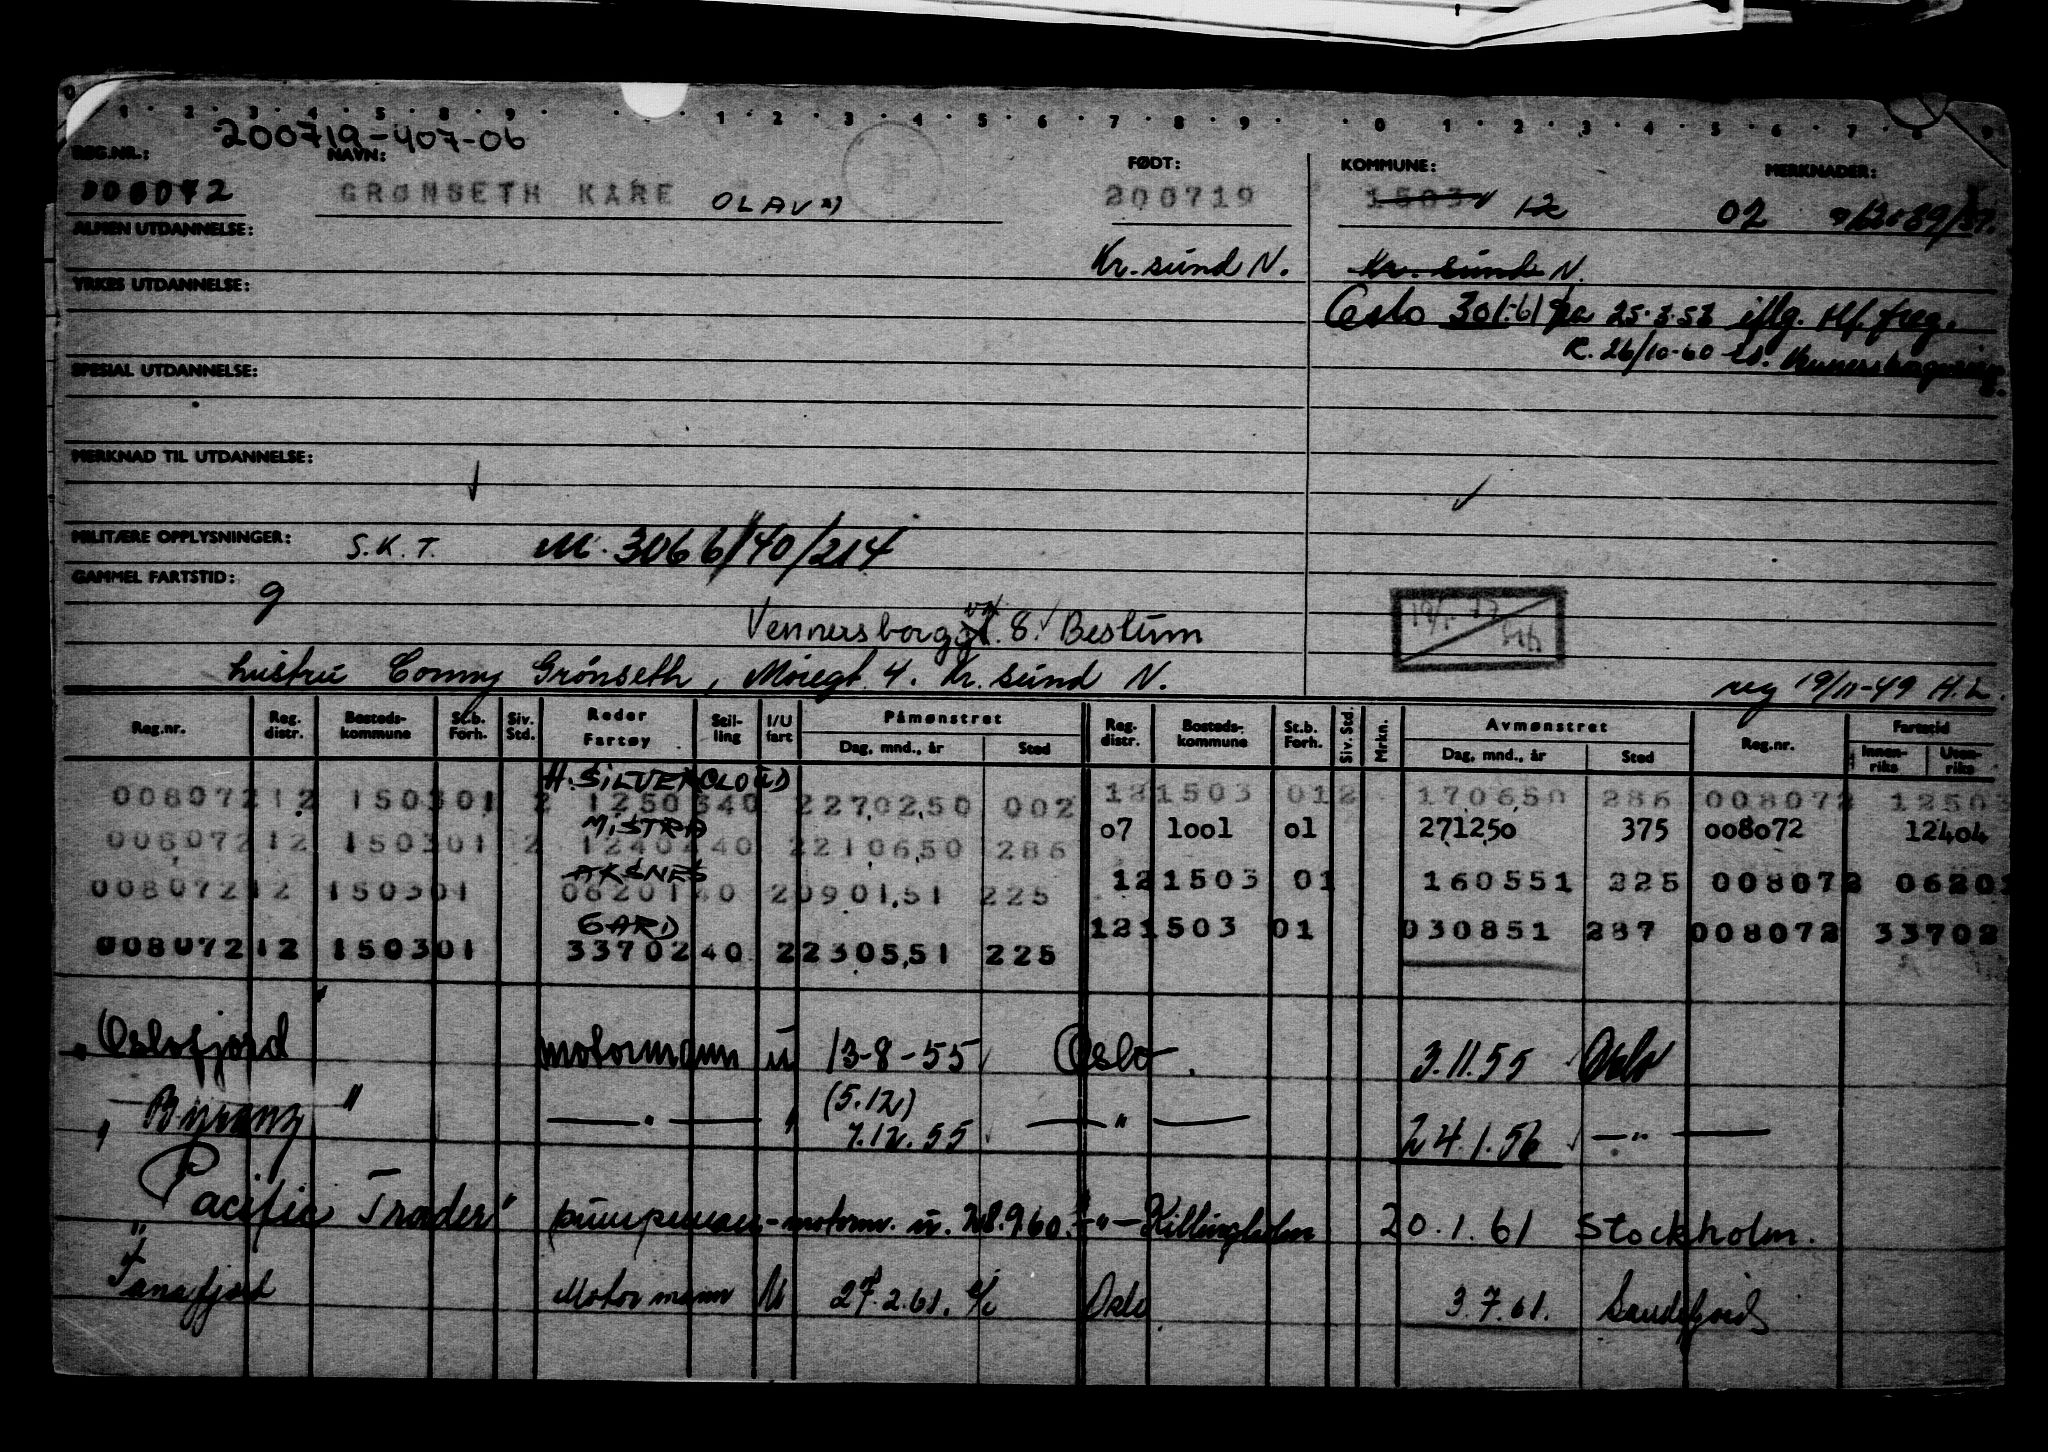 0 1 2 3 4 5 8 9 1 2 3 4 5 6 7 8 9 0 1 2 3 4 5 6 7 8 9
200719-407-06
REG.NR.: NAVN: FØDT: KOMMUNE: MERKNADER:
008072 GRØNSETH KÅRE OLAV 200719 1503 12 02
ALMEN UTDANNELSE:
Kr.sund N. Kr. sund N.
YRKES UTDANNELSE:
Oslo 301-61 fra 25.3.53 iflg. Hf. freg.
R. 26/10-60
SPESIAL UTDANNELSE:
MERKNAD TIL UTDANNELSE:
MILITÆRE OPPLYSNINGER: S.K.T. M. 3066/40/214
GAMMEL FARTSTID: g
Vennersborg 8. Bestum
hustru Conny Grønseth, Moregt. 4. Kr. sund N. reg 19/11-49 H.L.
Reg.nr. Reg. distr. Bosteds-kommune St.b. Forh. Siv. Std. Reder Fartøy Stil-ling I/U fart Påmønstret Dag, mnd., år Sted Reg. distr. Bosteds-kommune St.b. Forh. Siv. Std. Mrkn. Avmønstret Dag, mnd., år Sted Reg.nr. Fartstid Innen-riks Uten-riks
H. SILVERCLOUD
008072 12 1503 01 2 12503 40 2 270250 002 12 1503 01 2 170650 286 008072 12503
MISTRA
008072 12 1503 01 2 12404 40 2 210650 286 07 1001 01 271250 375 008072 12404
AKSNES
008072 12 1503 01 06201 40 2 090151 225 12 1503 01 160551 225 008072 06201
GARD
008072 12 1503 01 33702 40 2 230551 225 12 1503 01 030851 287 008072 33702
" Oslofjord " motormann u 13-8-55 Oslo 3.11.55 Oslo
" Byranz " — " — " (5.12) 7.12.55 — " — 24.1.56 — " —
" Pacific Trader " pumpeman-motorm. u. 28.9.60. — " — Killingholm 20.1.61 Stockholm.
" Tanafjord Motormann U 27.2.61. Oslo 3.7.61. Sandefjord